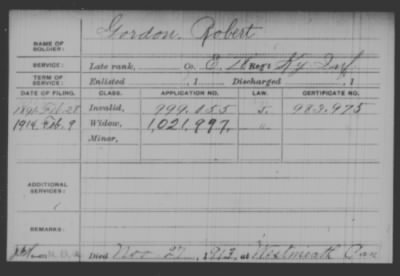 Gordon, Robert
NAME OF SOLDIER:
SERVICE: Late rank, Co. E, 28 Reg't Ky Inf
TERM OF SERVICE: Enlisted , 1 Discharged , 1
DATE OF FILING. CLASS. APPLICATION NO. LAW. CERTIFICATE NO.
1891 Feb. 28 Invalid, 999.155 S. 983.975
1914 Feb. 9 Widow, 1,021,997. "
Minor,
ADDITIONAL SERVICES:
REMARKS:
Died Nov 27, 1913, at Westmeath Can